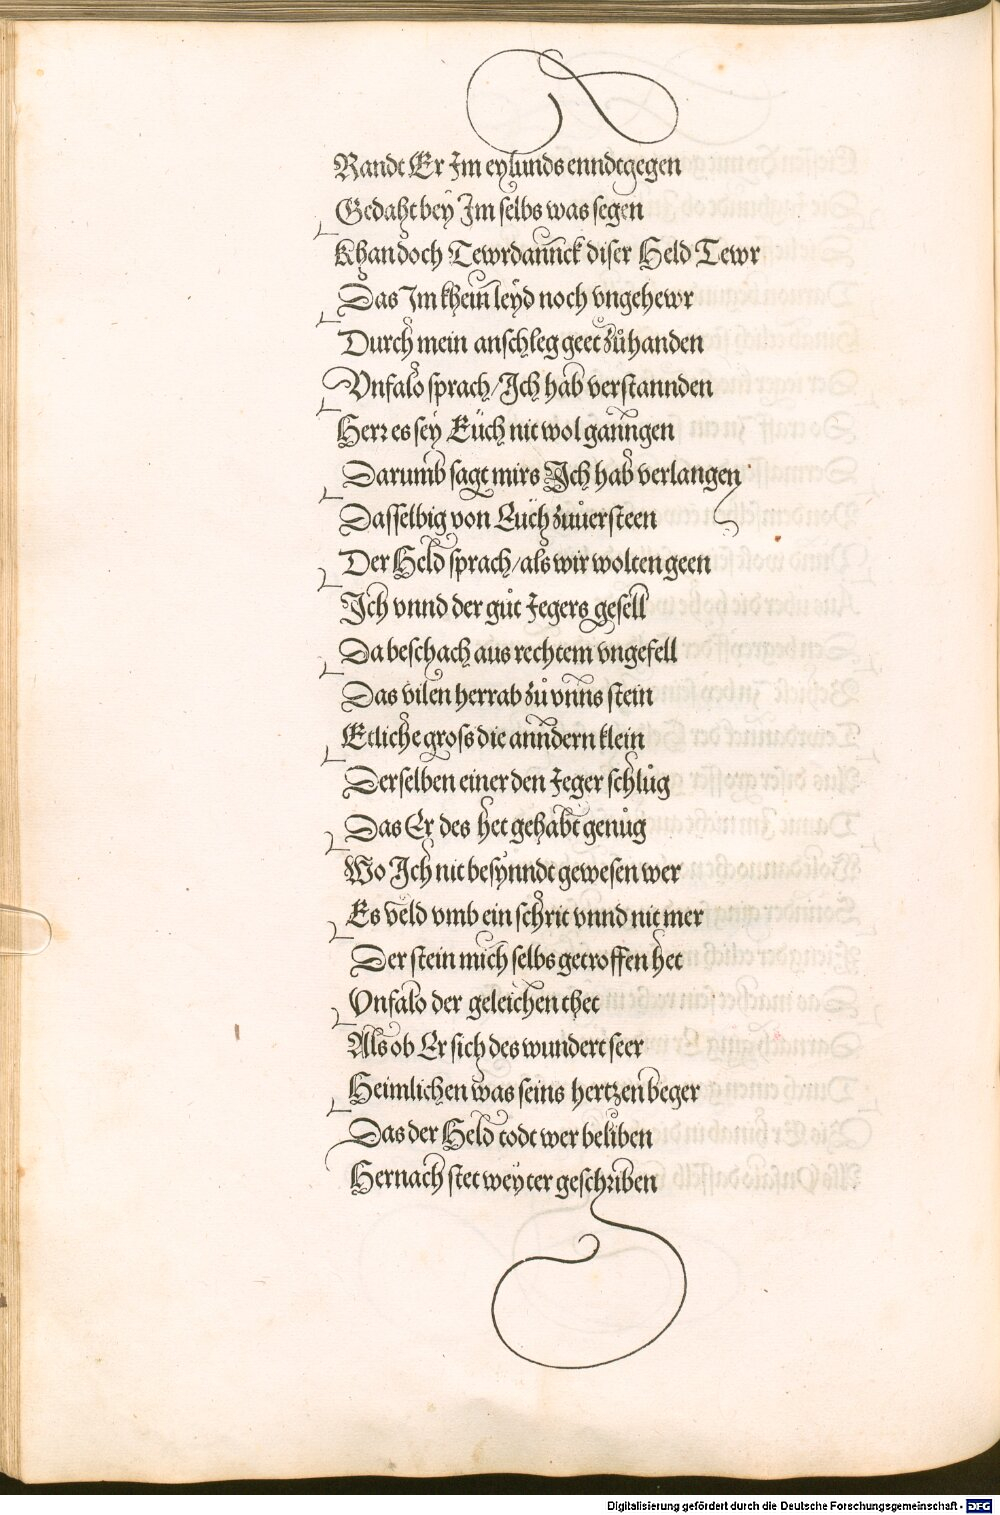 Randt Er Im eylunds enndtgegen
Gedaht bey Im selbs was segen
Khan doch Tewrdannck diser Held Tewr
Das Im khein leyd noch vngehewr
Durch mein anschleg geet zůhanden
Vnfalo sprach/Ich hab verstannden
Herr es sey Eüch nit wol ganngen
Darumb sagt mirs Ich hab verlangen
Dasselbig von Eüch zuuersteen
Der Held sprach/als wir wolten geen
Ich vnnd der gůt Jegers gesell
Da beschach aus rechtem vngefell
Das vilen herrab zů vnns stein
Etliche gross die anndern klein
Derselben einer den Jeger schlůg
Das Er des het gehabt genůg
Wo Ich nit besynndt gewesen wer
Es veld vmb ein schrit vnnd nit mer
Der stein mich selbs getroffen het
Vnfalo der geleichen thet
Als ob Er sich des wundert seer
Heimlichen was seins hertzen beger
Das der Held todt wer beliben
Hernach stet weyter geschriben
Digitalisierung gefördert durch die Deutsche Forschungsgemeinschaft - DFG